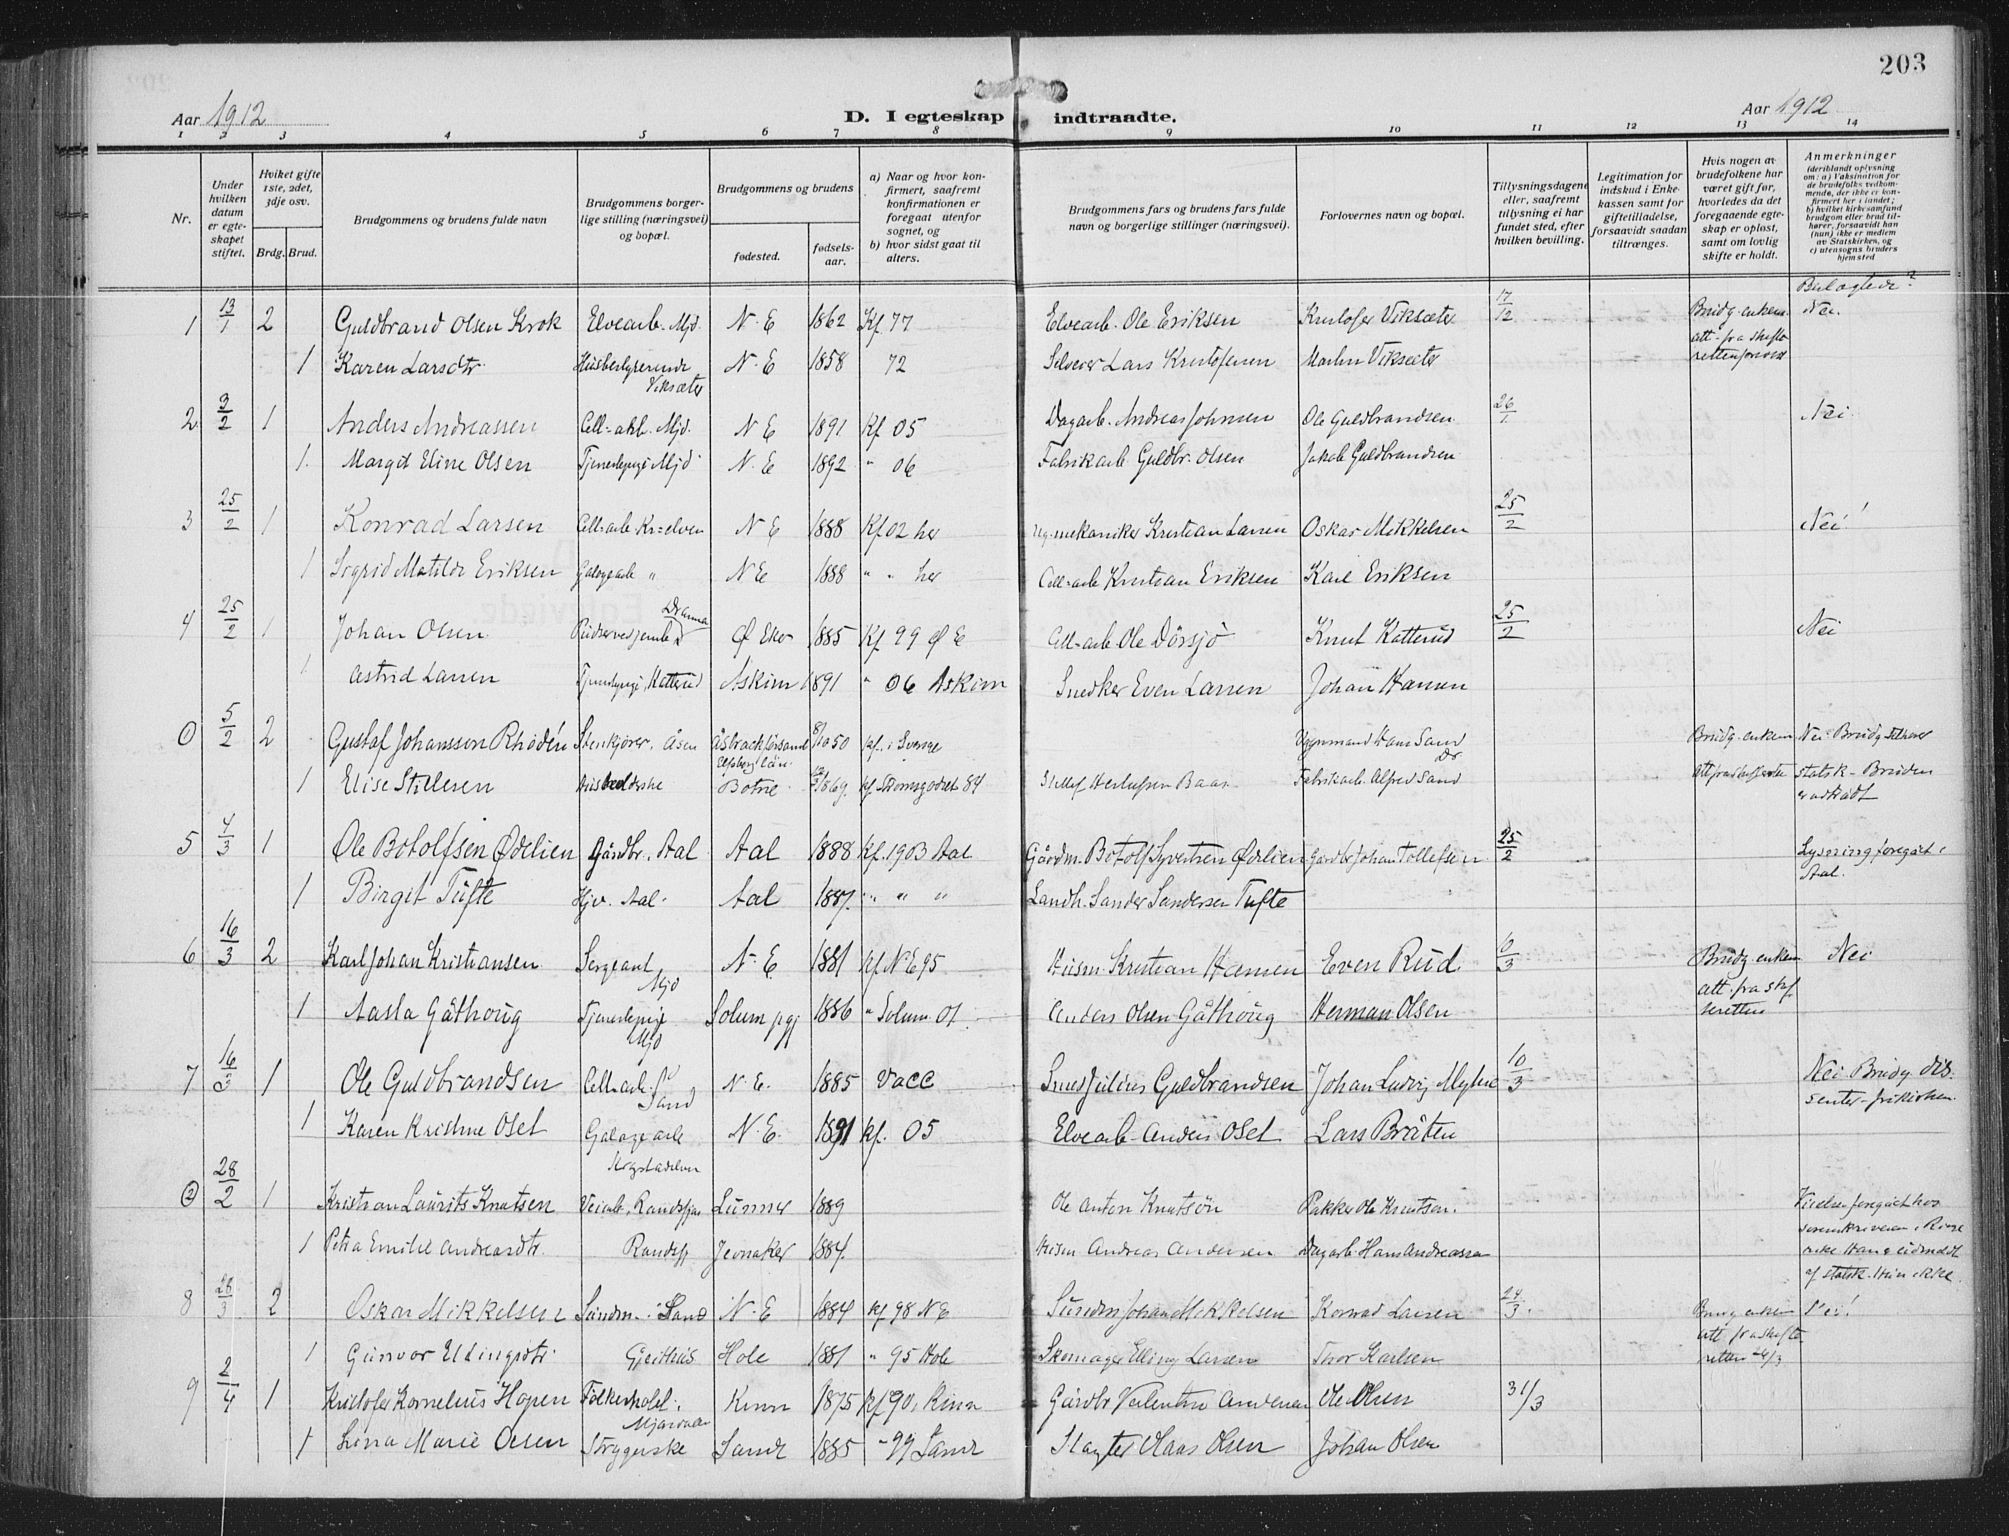 203
Aar 1912
D. I egteskap indtraadte.
Aar 1912
1 2 3 4 5 6 7 8 9 10 11 12 13 14
Nr.
Under hvilken datum er egteskapet stiftet.
Hviket gifte 1ste, 2det, 3dje osv.
Brdg. Brud.
Brudgommens og brudens fulde navn
Brudgommens borgerlige stilling (næringsvei) og bopæl.
Brudgommens og brudens
fødested.
fødselsaar.
a) Naar og hvor konfirmert, saafremt konfirmationen er foregaat utenfor sognet, og
b) hvor sidst gaat til alters.
Brudgommens fars og brudens fars fulde navn og borgerlige stillinger (næringsvei).
Forlovernes navn og bopæl.
Tillysningsdagene eller, saafremt tillysning ei har fundet sted, efter hvilken bevilling.
Legitimation for indskud i Enkekassen samt for giftetilladelse, forsaavidt saadan tiltrænges.
Hvis nogen av brudefolkene har været gift før, hvorledes da det foregaaende egteskap er opløst, samt om lovlig skifte er holdt.
Anmerkninger (deriblandt oplysning om: a) Vaksination for de brudefolks vedkommende, der ikke er konfirmert her i landet; b) hvilket kirkesamfund brudgom eller brud tilhører, forsaavidt han (hun) ikke er medlem av Statskirken, og c) utensogns bruders hjemsted
Beslægtede?
1 13/1 2 Guldbrand Olsen Krok Elvearb. Mjd. N. E 1862 Kf 77 Elvearb. Ole Eriksen Kristofer Viksæter 17/12 Brudg. enkem. Nei.
att. fra skifteretten forevist
1 Karen Larsdtr. Husbestyrerinde Viksæter N. E 1858 72 Selveier Lars Kristofersen Martin Viksæter
2 3/2 1 Anders Andreassen Cell-arb. Mjd. N E 1891 Kf 05 Dagarb. Andreas Johnsen Ole Guldbrandsen 26/1 Nei
1 Margit Eline Olsen Tjenestepige Mjd N. E 1892 " 06 Fabrikarb. Guldbr. Olsen Jakob Guldbrandsen
3 25/2 1 Konrad Larsen Cell-arb Kr-elven N E 1888 Kf 02 her mekaniker Kristian Larsen Oskar Mikkelsen 25/2 Nei!
1 Sigrid Matilde Eriksen Galogearb " N E 1888 " " her Cell-arb Kristian Eriksen Karl Eriksen
4 25/2 1 Johan Olsen Drammen Ø Eker 1885 Kf 99 Ø E Cell-arb Ole Dørsjø Knut Katterud 25/2 Nei
1 Astrid Larsen Tjenestepige Katterud Askim 1891 " 06 Askim Snedker Even Larsen Johan Hansen
① 5/2 2 Gustaf Johansson Rhodén Stenkjører, Åsen 8/10 50 kf. i Sverige Vognmand Hans Sand Brudg. enkem Nei Brudg tilhører
1 Elise Stillesen Husholderske Botne 1869 kf. Strømsgodset 84 Herlufsen Baas Fabrikarb. Alfred Sand Dr att fra skifteretten statsk- Bruden er udtrådt
5 4/3 1 Ole Botolfsen Ødelien Gårdbr. Aal Aal 1888 kf. 1903 Aal Gårdm. Botolf Syvertsen Ødelien Gårdbr Johan Tollefsen 25/2 Lysning foregåt i Aal.
1 Birgit Tufte Hjv. Aal Aal 1887. " " " Landh. Sander Sandersen Tufte
6 16/3 2 Karl Johan Kristiansen Sergeant Mjd N. E 1881 kf N E 95 Husm. Kristian Hansen Even Rud 10/3 Brudg. enkem Nei
att. fra skf. retten
1 Aasta Gåthoug Tjenestepige Mjd Solum pgj 1886 " Solum 01. Anders Olsen Gåthoug Herman Olsen
7 16/3 1 Ole Guldbrandsen Cell-arb. Sand N. E. 1885 Vacc Smed Julius Guldbrandsen Johan Ludvig Myhre 10/3 Nei Brudg. dissenter- frikirken.
1 Karen Kristine Oset Galogearb N. E. 1891 kf. 05 Elvearb. Anders Oset Lars Bråten
② 28/2 1 Kristian Laurits Knutsen Veiarb. Randsfjor Lunner 1889 Ole Anton Knutsøn Pakker Ole Knutsen. Vielsen foregåt hos sorenskriveren i Ringerike Han er udmeldt af statsk. Hun ikke.
1 Petra Emilie Andreasdtr. Randsfj Jevnaker 1884. Husm Andreas Andersen Dagarb. Hans Andreassen
8 28/3 2 Oskar Mikkelsen Sundm. i Sand N. E 1884 kf 98 N E Sundm Johan Mikkelsen Konrad Larsen 24/3. Brudg. enkem Nei!
att. fra skifteretten
1 Gunvor Ellingsdtr. Geithus Hole 1881 " 95 Hole Skomager Elling Larsen Thor Karlsen
9 2/4 1 Kristofer Kornelius Hopen Mjøndalen Kinn 1875 kf 90, Kinn Gårdbr Valentin Andersen Ole Olsen 31/3
1 Lina Marie Olsen Strygerske Sande 1885 - 99 Sande Slagter Claus Olsen Johan Olsen